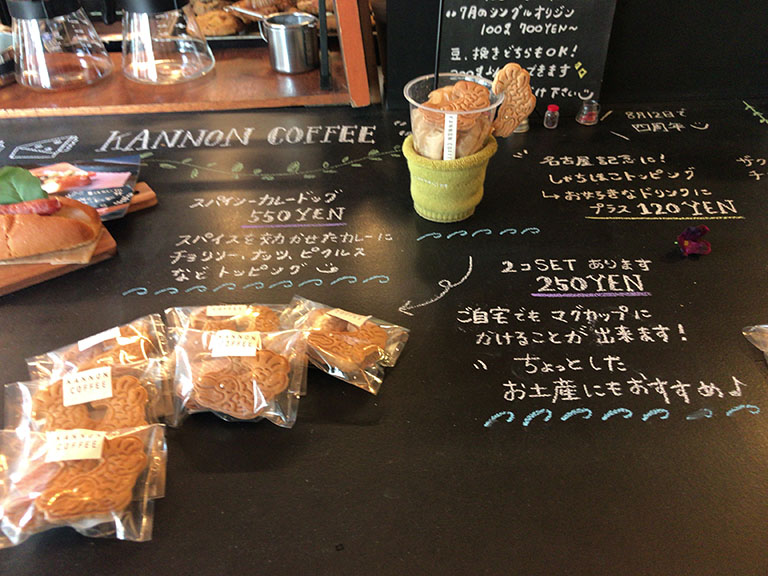 7月のシングルオリジン
100g 700YEN~
豆、挽きどちらもOK!
8月12日で
四周年
KANNON COFFEE
スパイシーカレードッグ
550YEN
スパイスを効かせたカレーに
チョリソー、ナッツ、ピクルス
などトッピング
名古屋記念に!
しゃちほこトッピング
→お好きなドリンクに
プラス 120YEN
2コSET あります
250YEN
ご自宅でもマグカップに
かけることが出来ます!
ちょっとした
お土産にもおすすめ♪
KANNON
COFFEE
COFFEE
KANNON
COFFEE
KANNON
COFFEE